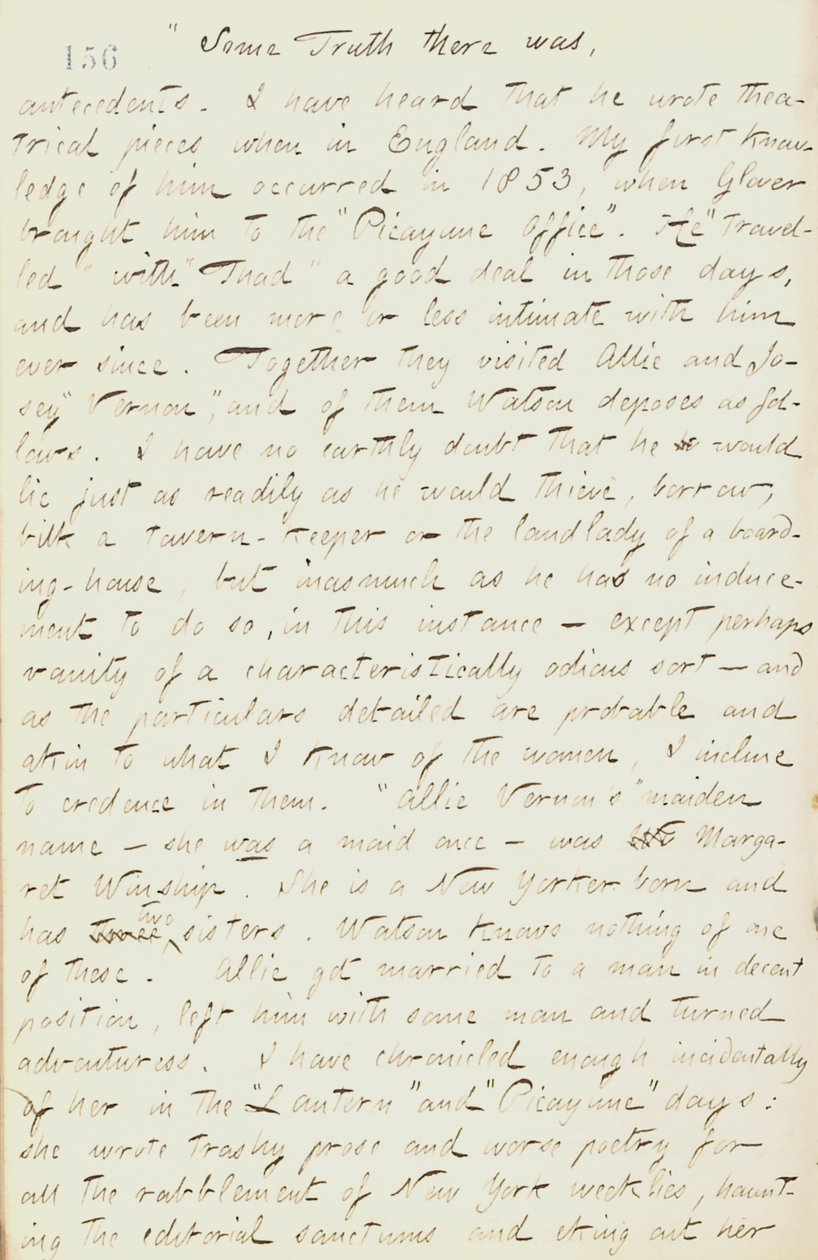 156
" Some Truth there was,
antecedents. I have heard that he wrote thea-
trical pieces when in England. My first know-
ledge of him occurred in 1853, when Glover
brought him to the "Picayune Office". He "travel-
led" with "Thad" a good deal in those days,
and has been more or less intimate with him
ever since. Together they visited Allie and Jo-
sey "Vernon", and of them Watson deposes as fol-
lows. I have no earthly doubt that he would
lie just as readily as he would thieve, borrow,
bilk a tavern-keeper or the landlady of a board-
ing-house, but inasmuch as he has no induce-
ment to do so, in this instance — except perhaps
vanity of a characteristically odious sort — and
as the particulars detailed are probable and
akin to what I know of the women, I incline
to credence in them. "Allie Vernon's" maiden
name — she was a maid once — was Marga-
ret Winship. She is a New Yorker born and
has three two sisters. Watson knows nothing of one
of these. Allie got married to a man in decent
position, left him with some man and turned
adventuress. I have chronicled enough incidentally
of her in the "Lantern" and "Picayune" days:
she wrote trashy prose and worse poetry for
all the rabblement of New York weeklies, haunt-
ing the editorial sanctums and eking out her